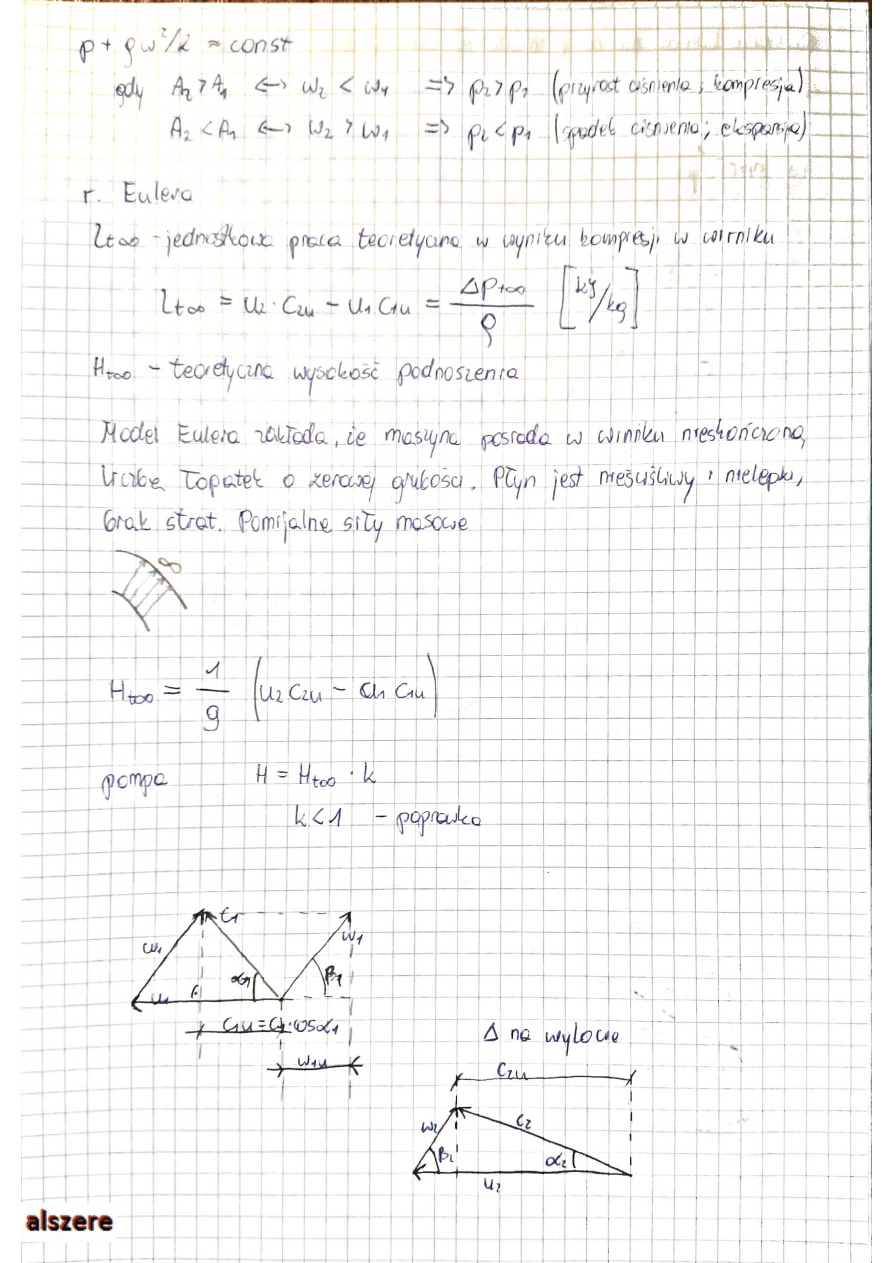 p + ρw²/2 = const
gdy A₂>A₁ ↔ w₂ < w₁ => p₂>p₁ (przyrost ciśnienia; kompresja)
A₂<A₁ ↔ w₂ > w₁ => p₂<p₁ (spadek ciśnienia; ekspansja)
r. Eulera
lt∞ - jednostkowa praca teoretyczna w wyniku kompresji w wirniku
lt∞ = u₂ · c₂u − u₁ c₁u = Δpt∞ / ρ [kJ/kg]
Ht∞ - teoretyczna wysokość podnoszenia
Model Eulera zakłada, że maszyna posiada w wirniku nieskończoną
liczbę łopatek o zerowej grubości. Płyn jest nieściśliwy i nielepki,
brak strat. Pomijalne siły masowe
∞
Ht∞ = 1/g (u₂ c₂u − u₁ c₁u)
pompa H = Ht∞ · k
k<1 - poprawka
c₁
w₁ w₁
α₁ β₁
u₁
c₁u = c₁·cosα₁
w₁u
Δ na wylocie
c₂u
w₂ c₂
β₂ α₂
u₂
alszere